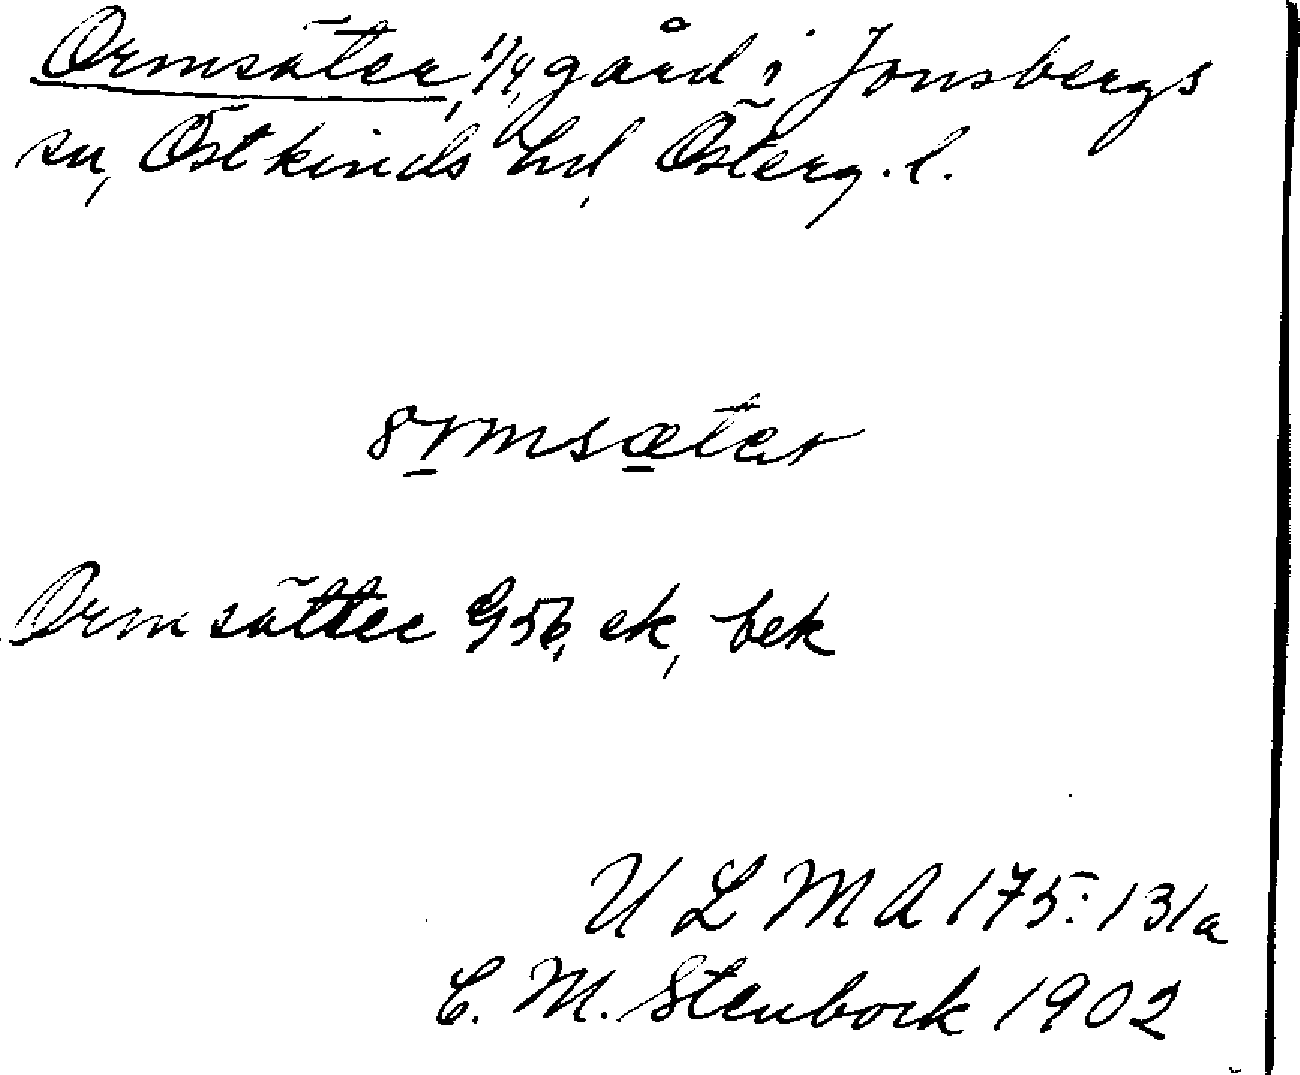 Ormsäter, 1/4, gård i Jonsbergs
sn, Östkinds hd, Österg. l.
ormsæter
Ormsätter G 56, ek, bek
U L M A 175:131a
C. M. Stenbock 1902